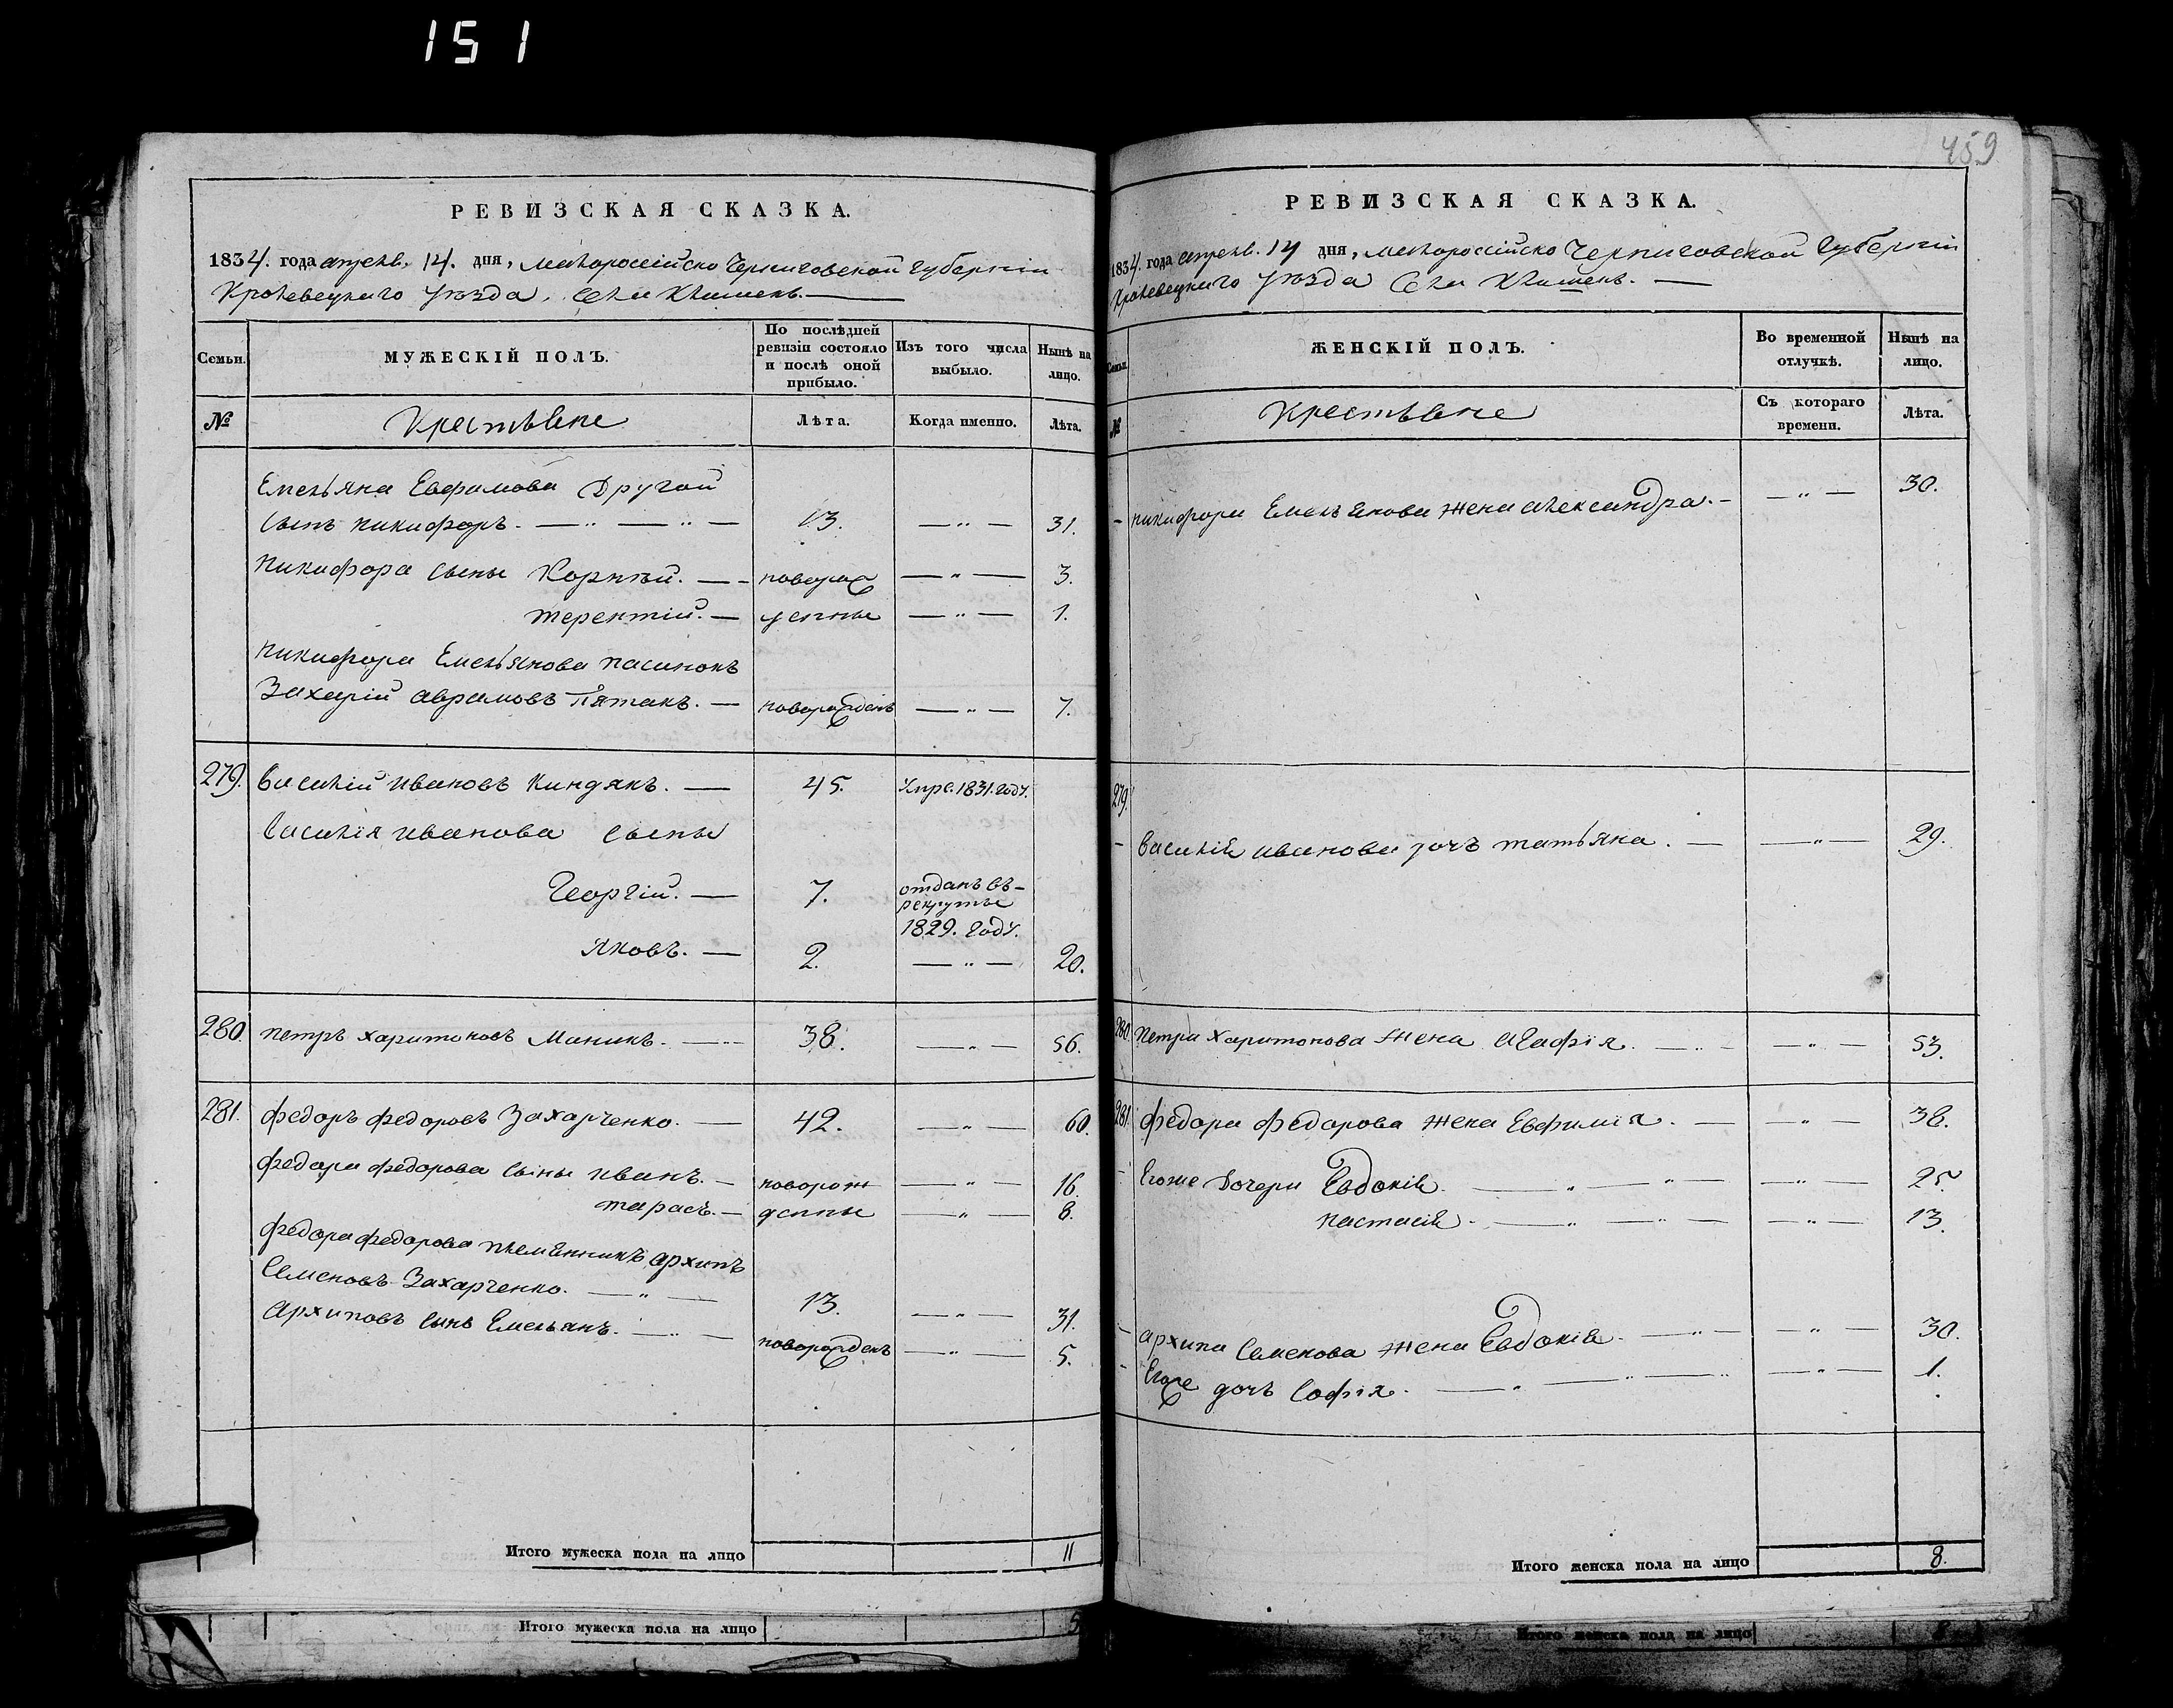 151
459
РЕВИЗСКАЯ СКАЗКА.
1834. года апреля. 14. дня, малороссійско Черниговской губерніи
Кролевецкаго уѣзда, села Клишекъ.
Семьи.
МУЖЕСКІЙ ПОЛЪ.
По послѣдней ревизіи состояло и послѣ оной прибыло.
Изъ того числа выбыло.
Нынѣ на лицо.
№
Крестьяне
Лѣта.
Когда именно.
Лѣта.
Емельяна Евфимова Другой
сынъ никифоръ. 13. 31.
Никифора сыны Корнѣй. новорож 3.
терентій. денные 1.
никифора Емельянова пасинокъ
Захарій аврамовъ Пятакъ. новорожденъ 7.
279. василій ивановъ киндякъ. 45. Умре. 1831. году.
василія иванова сыны
Георгій. 7. отданъ въ рекруты 1829. году.
Яковъ. 2. 20.
280. петръ харитоновъ Маникъ. 38. 56.
281. федоръ федоровъ Захарченко. 42. 60.
федора федорова сыны иванъ. новорож 16.
тарасъ. денные 8.
федора федорова племянникъ архипъ
Семеновъ Захарченко. 13. 31.
Архиповъ сынъ Емельянъ. новорожденъ 5.
Итого мужеска пола на лицо 11
Итого мужеска пола на лицо 5
РЕВИЗСКАЯ СКАЗКА.
1834. года апреля. 14 дня, малороссійско Черниговской губерніи
Кролевецкаго уѣзда Села Клишекъ.
Семьи.
ЖЕНСКІЙ ПОЛЪ.
Во временной отлучкѣ.
Нынѣ на лицо.
№
Крестьяне
Съ котораго времени.
Лѣта.
никифора Емельянова жена александра. 30.
279.
василія иванова дочъ татьяна. 29.
280 Петра Харитонова жена агафія. 53.
281. федора федорова жена Евфимія. 38.
Егоже дочери Евдокія. 25.
настасія. 13.
архипа Семенова жена Евдокія. 30.
Егоже дочъ Софія. 1.
Итого женска пола на лицо 8.
Итого женска пола на лицо 8